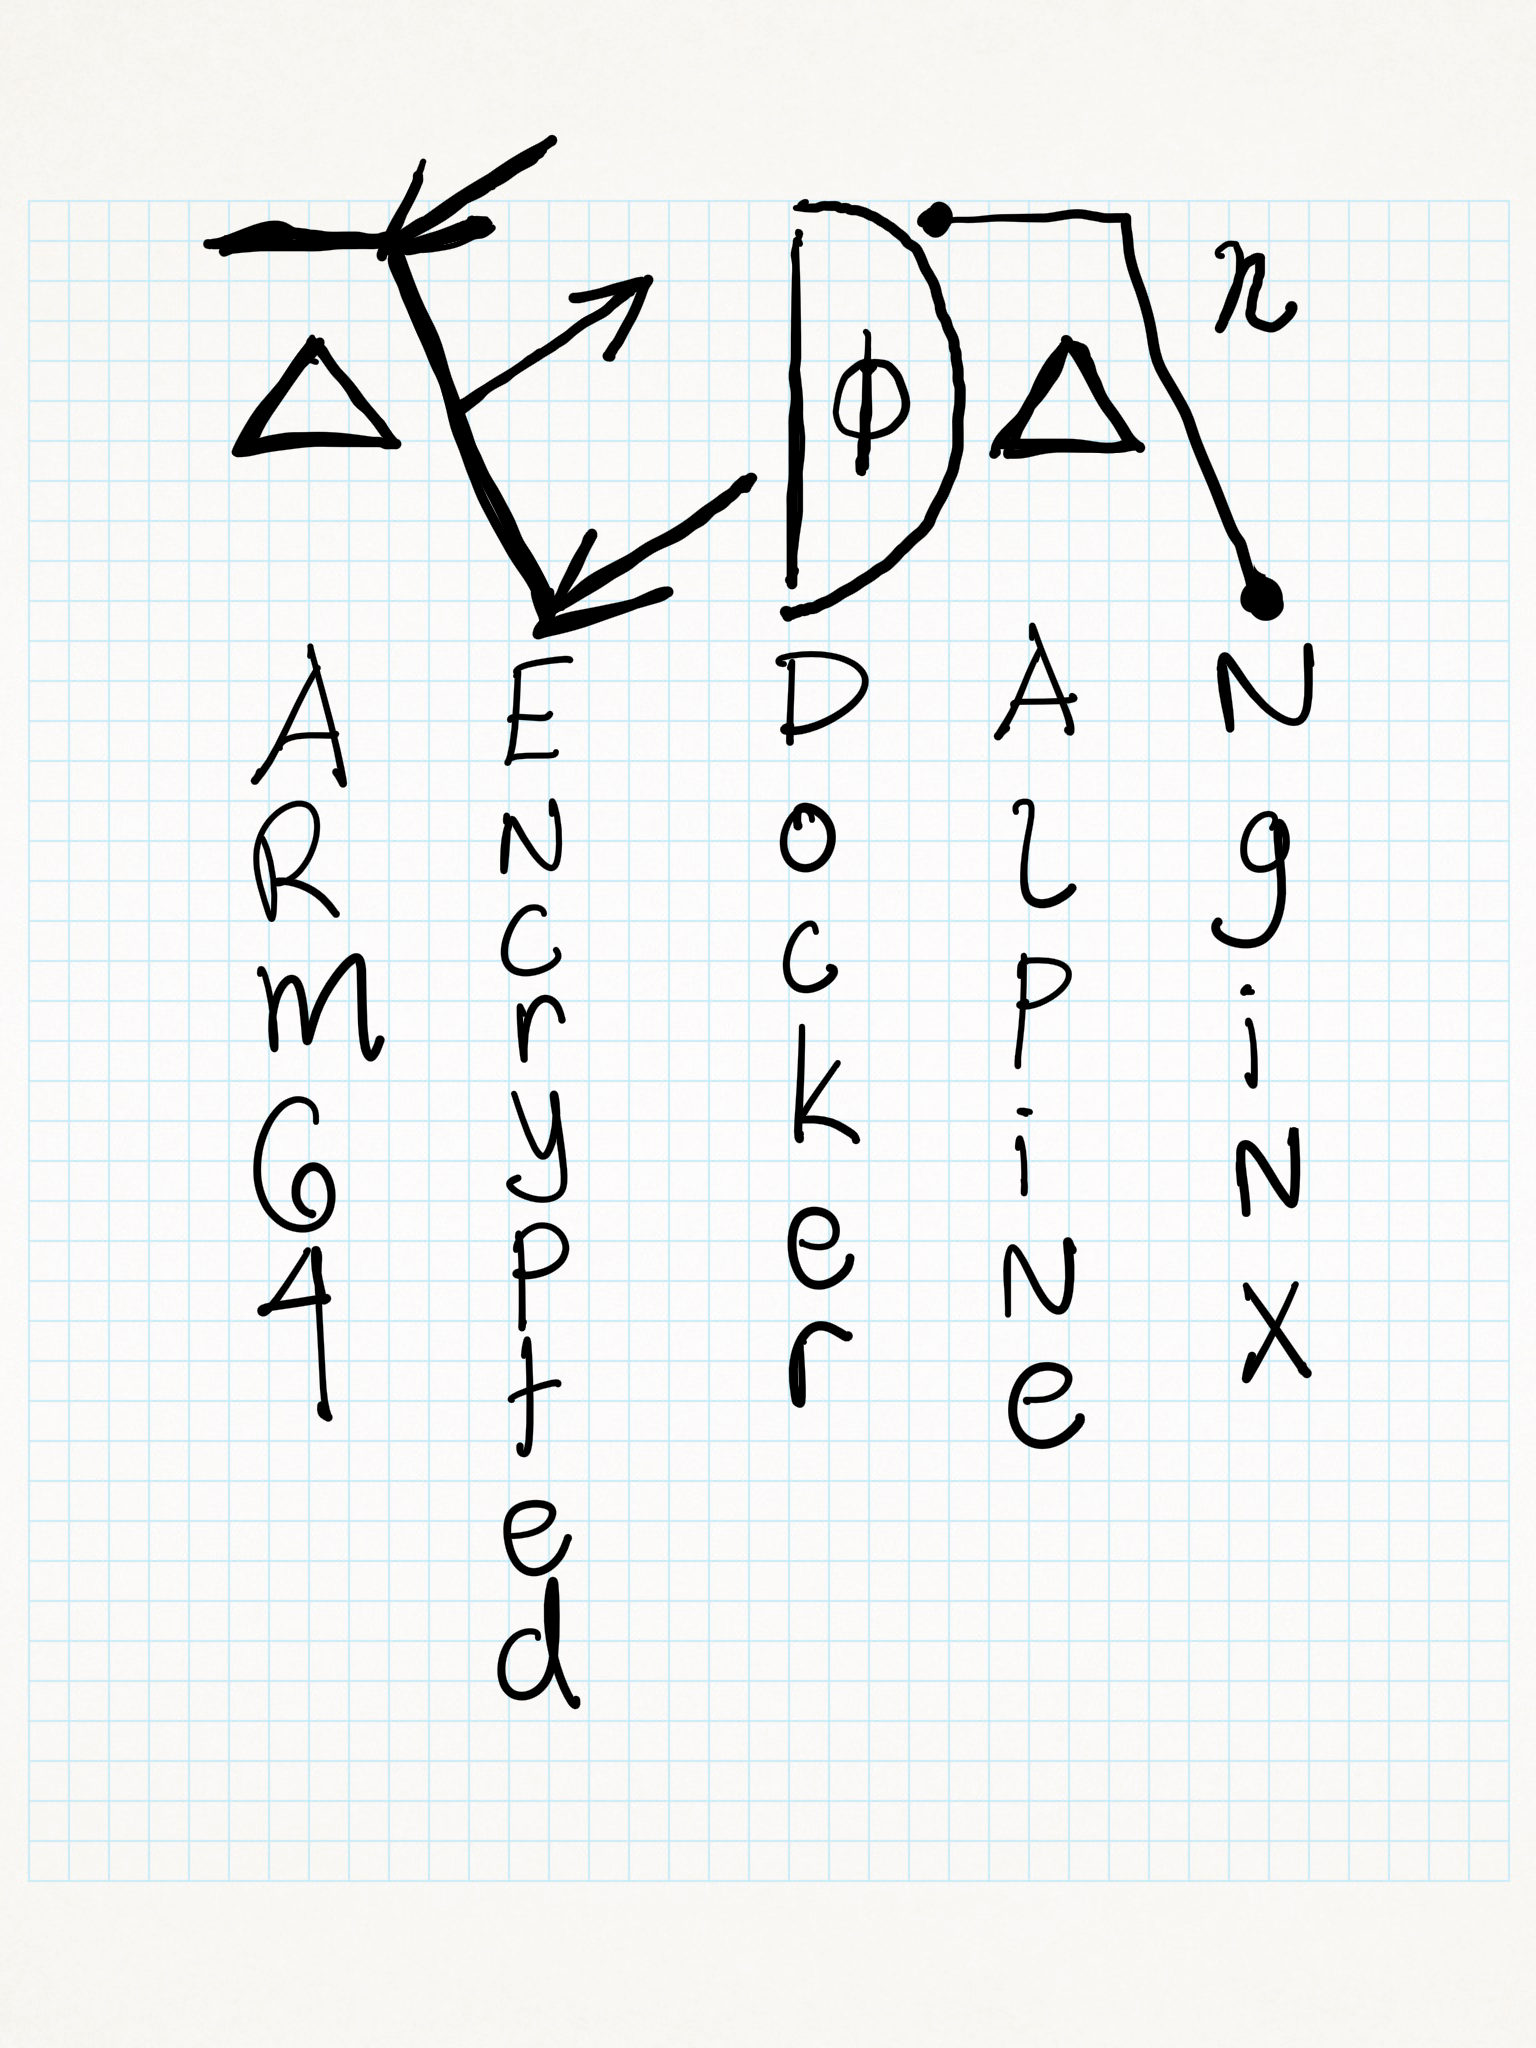 Δ E D Φ Δ n
ARM64
ENcrypted
Docker
AlPiNe
NgiNX